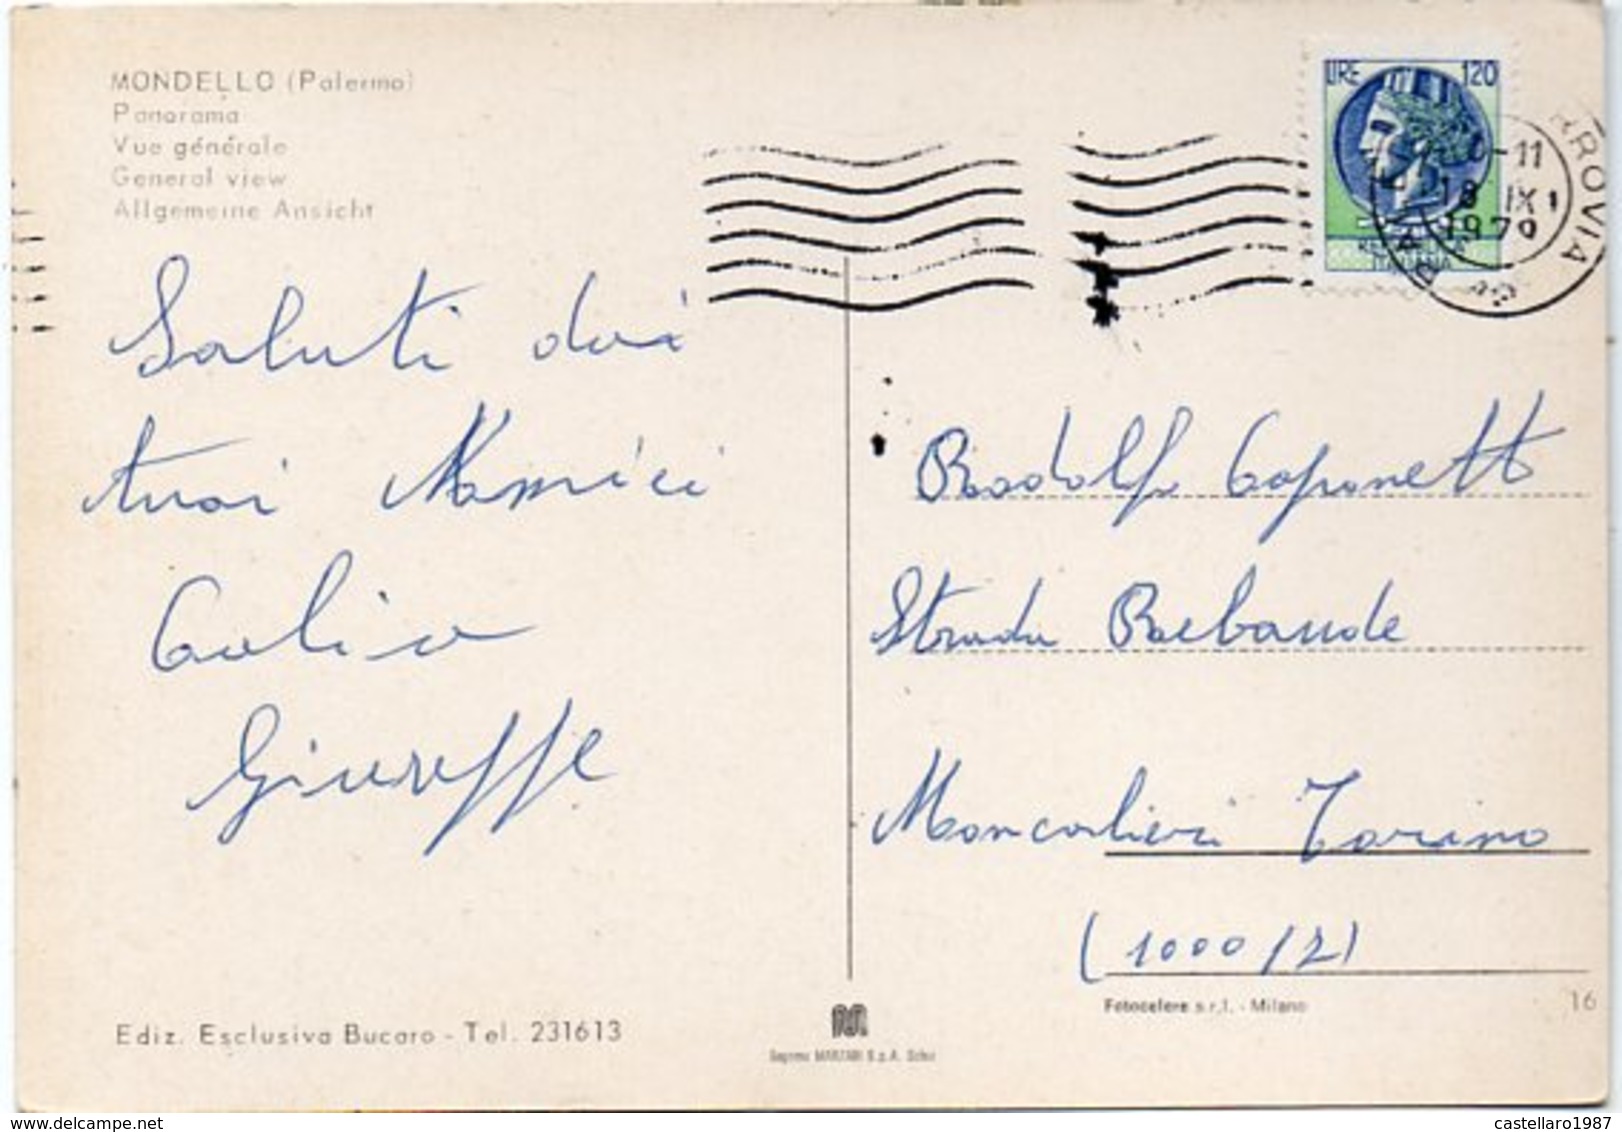 MONDELLO (Palermo)
Panorama
Vue générale
General view
Allgemeine Ansicht
LIRE 120
-11
18 IX
1979
RROVIA
Saluti dai
tuoi Amici
Giuseppe
Rodolfo Caponetto
Strada Rebaude
Moncalieri Torino
(1000/2)
Ediz. Esclusiva Bucaro - Tel. 231613
Fotocelere s.r.l. - Milano
16
castellaro1987